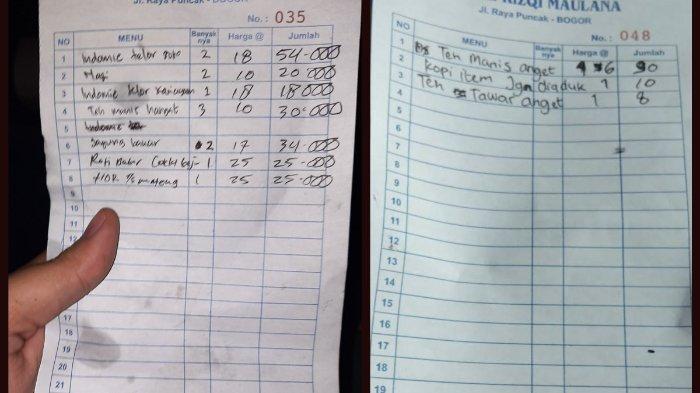 Jl. Raya Puncak - BOGOR
No. : 035
NO MENU Banyak nya Harga @ Jumlah
1 Indomie telor soto 2 18 54.000
2 Nasi 2 10 20.000
3 Indomie telor 1 18 18000
4 Teh manis hangat 3 10 30.000
5 Indomie
6 2 17 34.000
7 Roti Bakar 1 25 25.000
8 1/2 mateng 1 25 25.000
9
10
11
12
17
18
19
20
21
RIZQI MAULANA
Jl. Raya Puncak - BOGOR
No. : 048
NO MENU Banyak nya Harga @ Jumlah
1 Teh Manis anget 6 90
2 kopi item Jgn diaduk 1 10
3 Teh Tawar anget 1 8
4
5
6
7
8
9
10
11
12
13
14
15
16
17
18
19